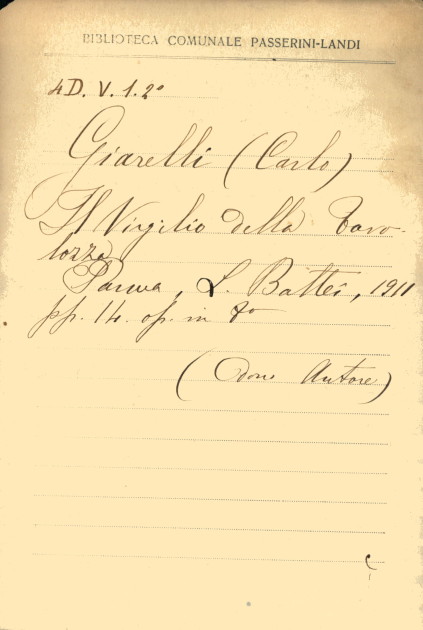 BIBLIOTECA COMUNALE PASSERINI-LANDI
4D. V. 1. 2º
Giarelli (Carlo)
Il Virgilio della Tavo-
lozza
Parma, L. Battei, 1911
pp. 14. op. in 8º
(Dono Autore)